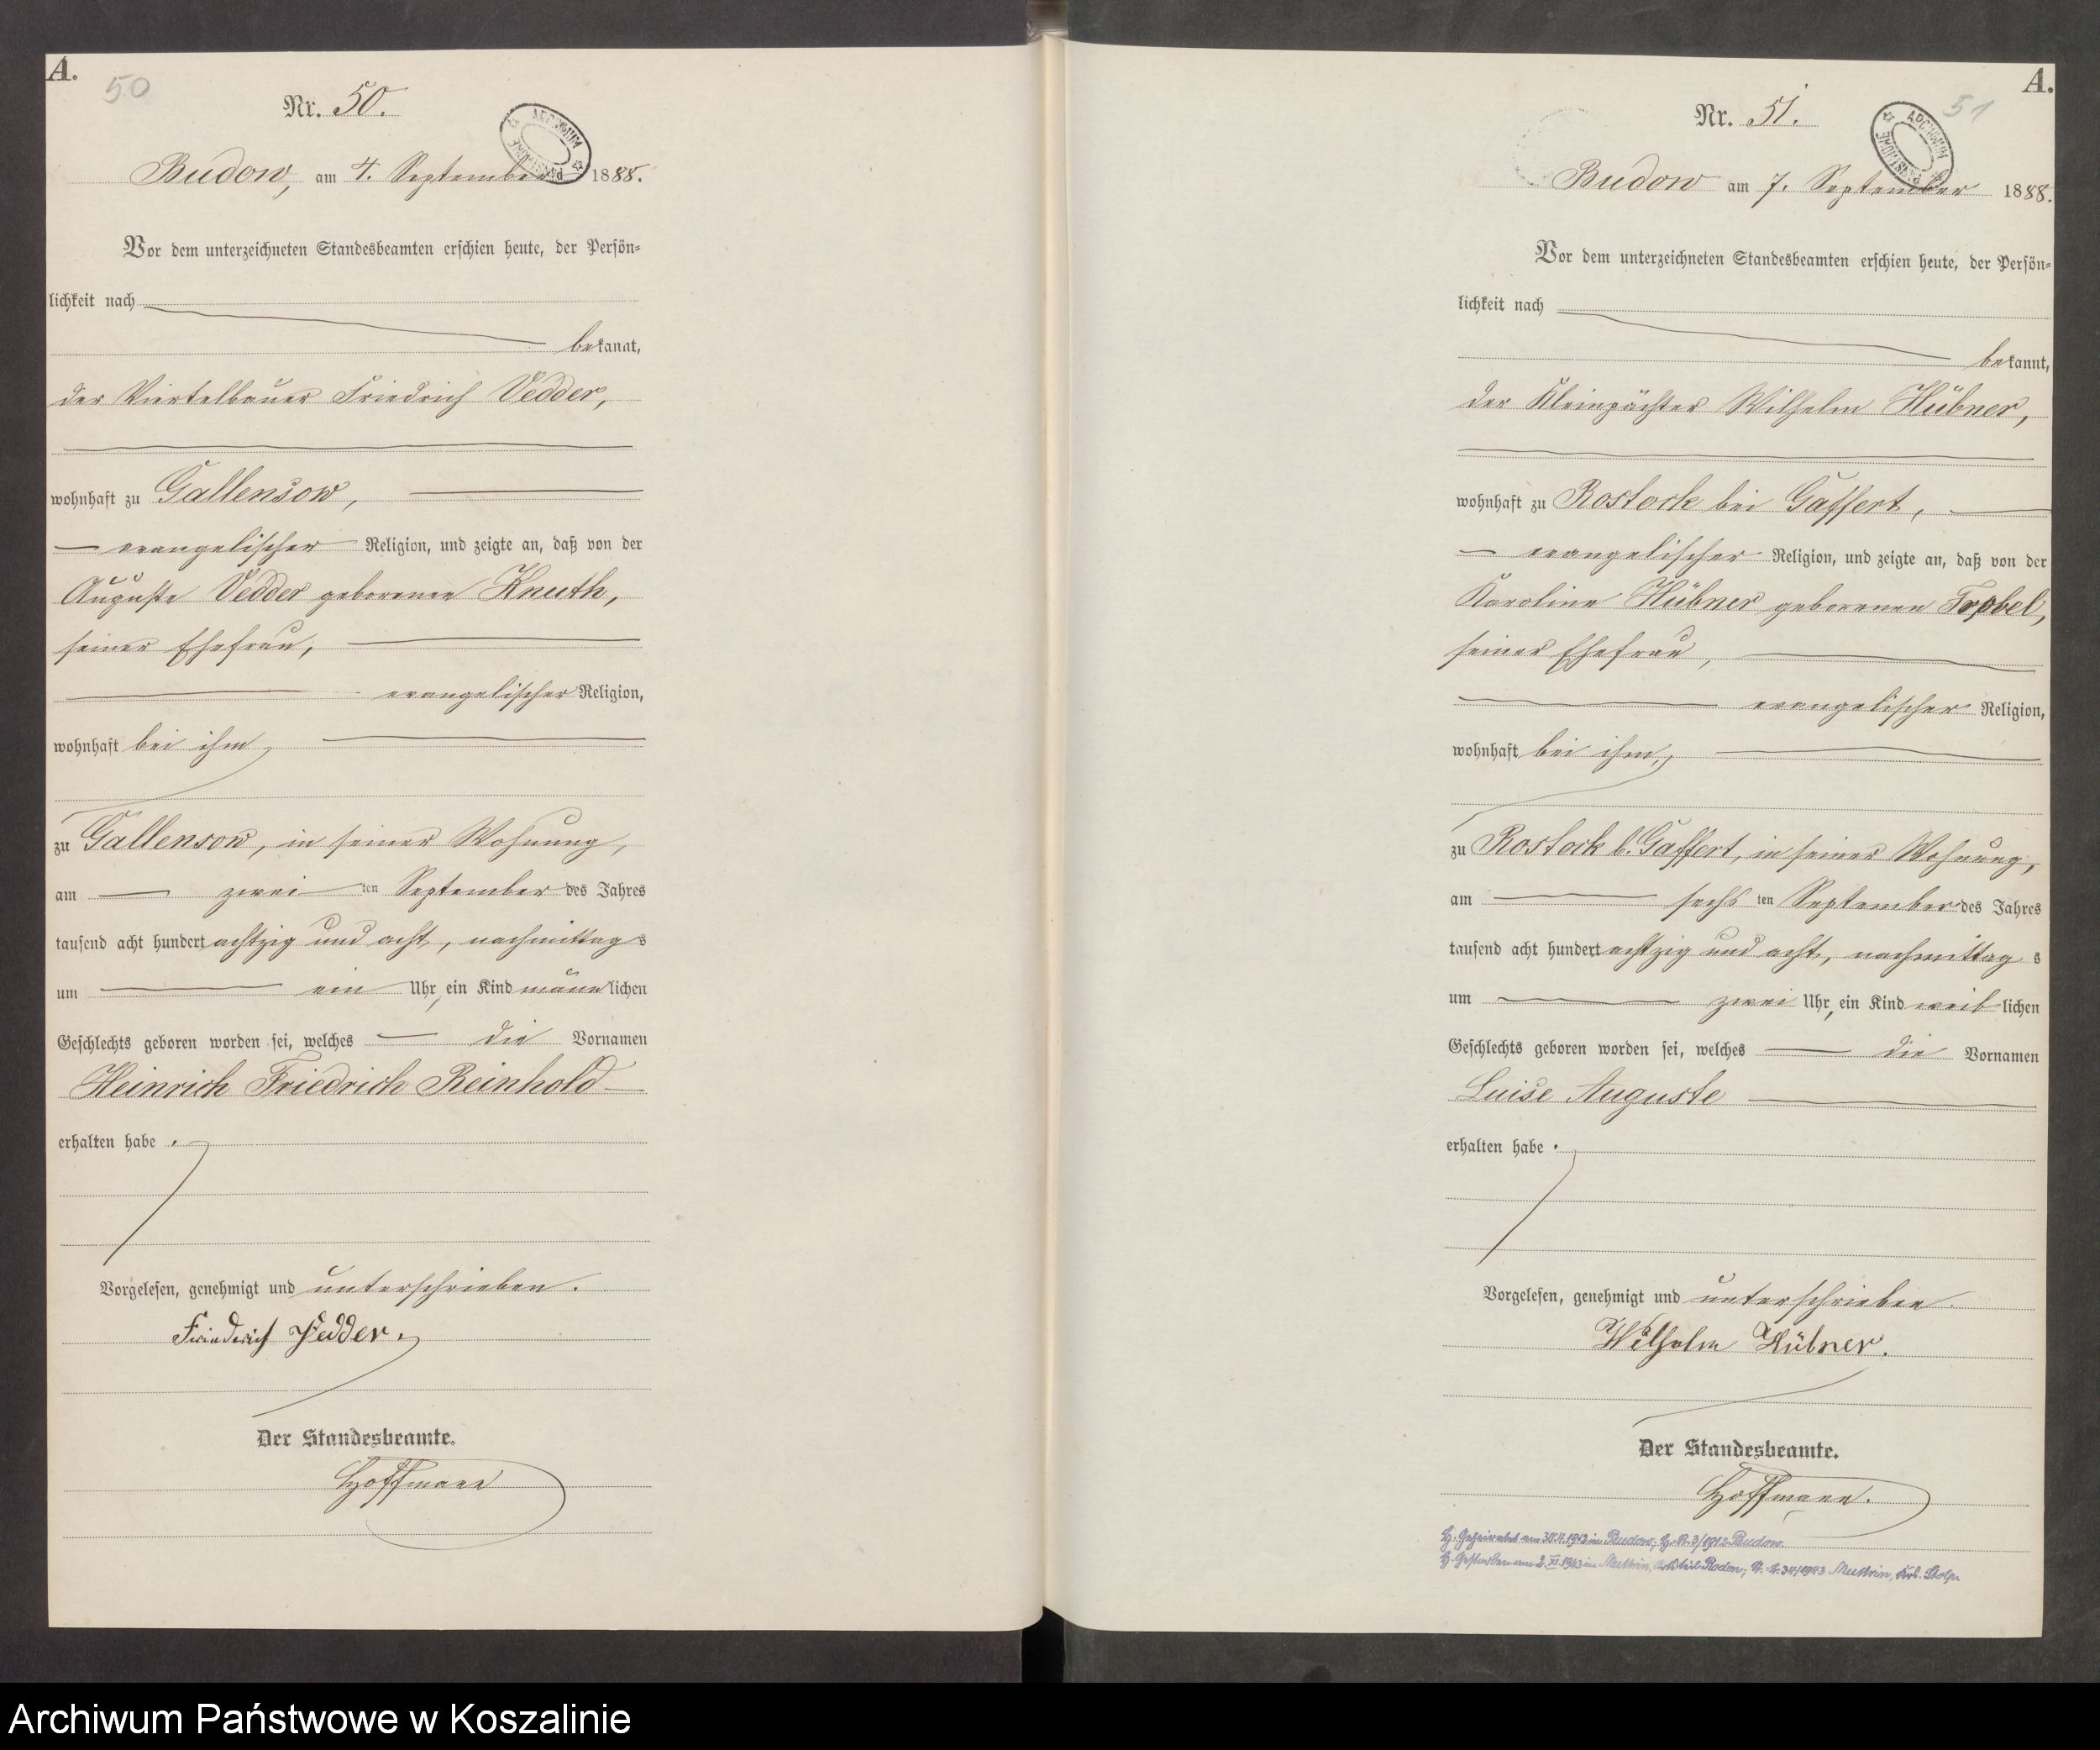 A.
50
Nr. 50.
ARCHIWUM PAŃSTWOWE
Budow, am 4. September 1888.
Vor dem unterzeichneten Standesbeamten erschien heute, der Persön-
lichkeit nach
bekannt,
der Viertelbauer Friedrich Vedder,
wohnhaft zu Gallensow,
evangelischer Religion, und zeigte an, daß von der
Auguste Vedder geborenen Knuth,
seiner Ehefrau,
evangelischer Religion,
wohnhaft bei ihm,
zu Gallensow, in seiner Wohnung,
am zwei ten September des Jahres
tausend acht hundert achtzig und acht, nachmittags
um ein Uhr, ein Kind männlichen
Geschlechts geboren worden sei, welches die Vornamen
Heinrich Friedrich Reinhold
erhalten habe.
Vorgelesen, genehmigt und unterschrieben.
Friederich Vedder.
Der Standesbeamte.
Hoffmann
A.
51
Nr. 51.
ARCHIWUM PAŃSTWOWE
Budow am 7. September 1888.
Vor dem unterzeichneten Standesbeamten erschien heute, der Persön-
lichkeit nach
bekannt,
der Kleinpächter Wilhelm Hübner,
wohnhaft zu Rostock bei Gaffert,
evangelischer Religion, und zeigte an, daß von der
Karoline Hübner geborenen
seiner Ehefrau,
evangelischer Religion,
wohnhaft bei ihm,
zu Rostock b. Gaffert, in seiner Wohnung,
am sechs ten September des Jahres
tausend acht hundert achtzig und acht, nachmittag s
um zwei Uhr, ein Kind weiblichen
Geschlechts geboren worden sei, welches die Vornamen
Luise Auguste
erhalten habe.
Vorgelesen, genehmigt und unterschrieben.
Wilhelm Hübner.
Der Standesbeamte.
Hoffmann.
Geheiratet am in Budow, 3/1912 Budow.
Gestorben am 2. XI. 1943 in Muttrin, 34/1943 Muttrin, Krs. Stolp.
Archiwum Państwowe w Koszalinie